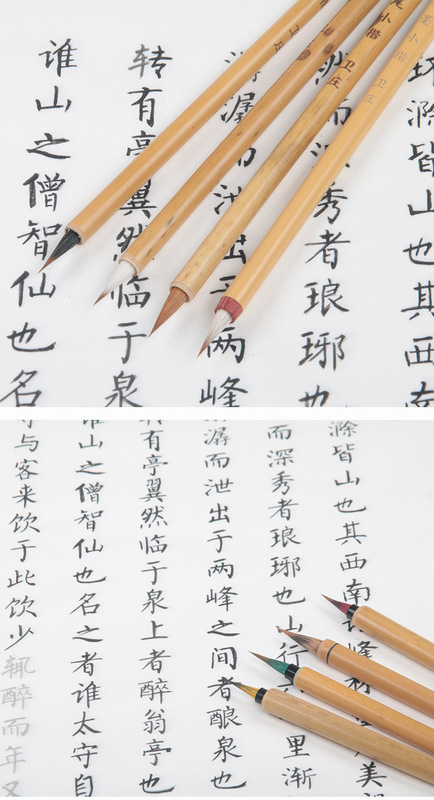 环滁皆山也其西南
而深秀者琅琊也
潺而泄出于两峰
转有亭翼然临于泉
谁山之僧智仙也名
卫庄
小楷 卫庄
笔小楷 卫庄
滁皆山也其西南诸峰
美
而深秀者琅琊也山行
里渐
潺而泄出于两峰之间者酿泉也
有亭翼然临于泉上者醉翁亭也
谁山之僧智仙也名之者谁太守自
与客来饮于此饮少辄醉而年又